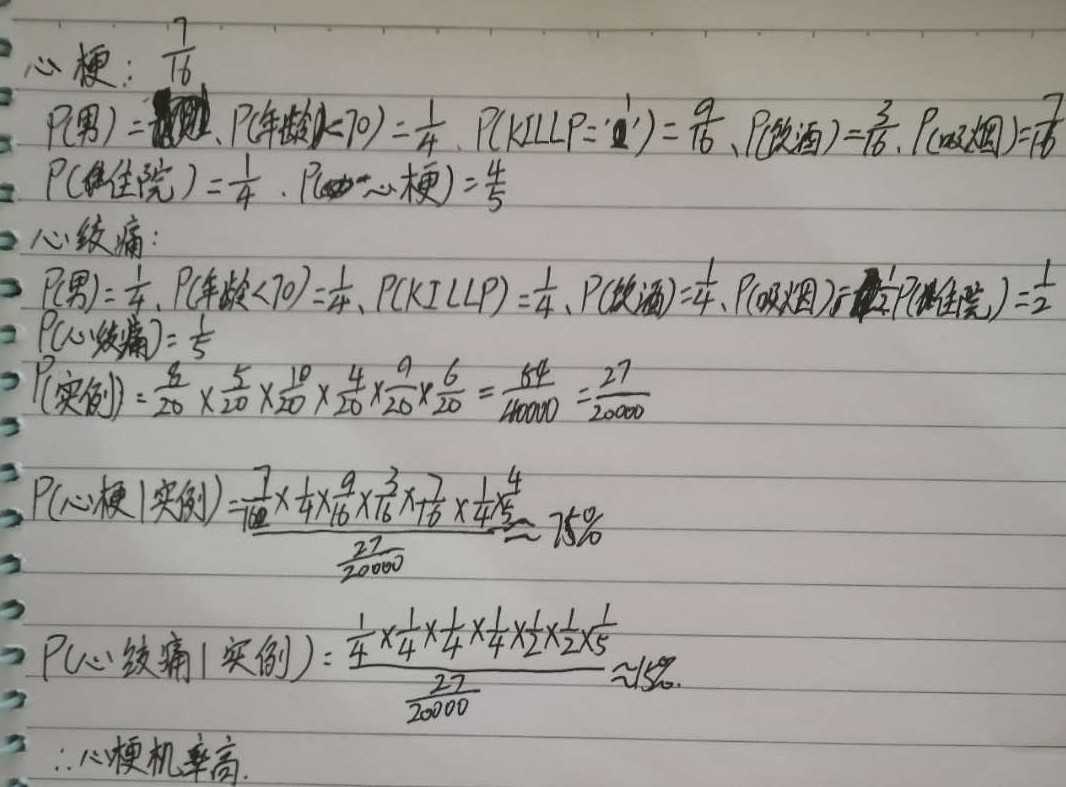 心梗: 7/16
P(男) = 、P(年龄<70) = 1/4、P(KILLP='1') = 9/16、P(饮酒) = 3/16、P(吸烟) = 7/16
P(住院) = 1/4、P(心梗) = 4/5
心绞痛:
P(男) = 1/4、P(年龄<70) = 1/4、P(KILLP) = 1/4、P(饮酒) = 1/4、P(吸烟) = 1/2 P(住院) = 1/2
P(心绞痛) = 1/5
P(实例) = 8/20 × 5/20 × 10/20 × 4/20 × 9/20 × 6/20 = 54/40000 = 27/20000
P(心梗|实例) = 7/16 × 1/4 × 9/16 × 3/16 × 7/16 × 1/4 × 4/5 / 27/20000 ≈ 75%
P(心绞痛|实例) = 1/4 × 1/4 × 1/4 × 1/4 × 1/2 × 1/2 × 1/5 / 27/20000 ≈ 15%.
∴心梗机率高.